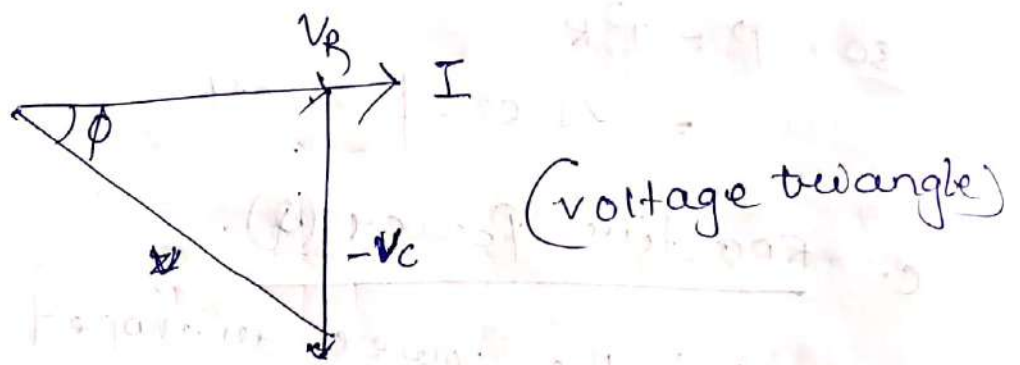 V_R
I
φ
V
-V_C
(voltage triangle)